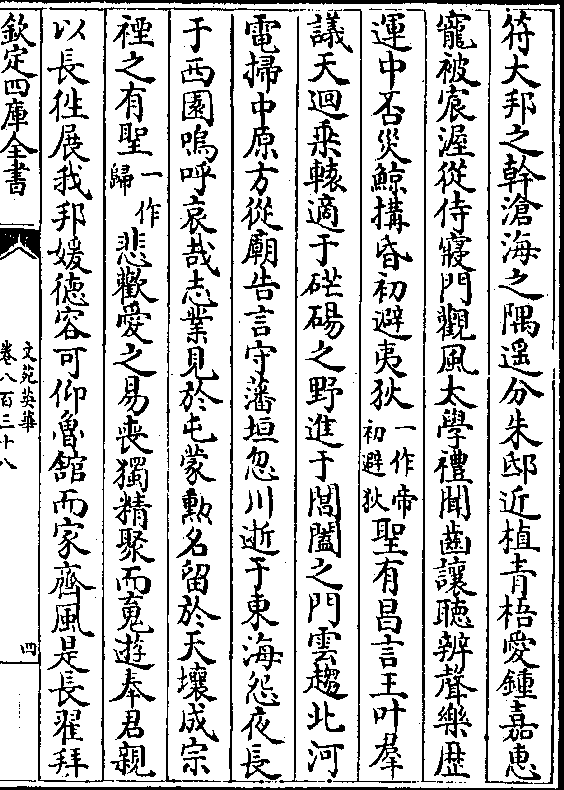 符大邦之幹滄海之隅遥分朱邸近植青梧愛鍾嘉惠
寵被宸渥從侍寢門觀風太學禮聞齒讓聽辨聲樂歴
運中否災鯨搆昏初避夷狄一作帝初避狄聖有昌言王叶羣
議天迴乘轅適于硭碭之野進于閶闔之門雲趨北河
電掃中原方從廟告言守藩垣忽川逝于東海怨夜長
于西園嗚呼哀哉志業見於屯蒙勲名留於天壤成宗
禋之有聖一作歸悲歡愛之易喪獨精聚而䰟遊奉君親
以長徃展我邦媛徳容可仰魯舘而家齊風是長翟拜
欽定四庫全書
文苑英華
卷八百三十八
四